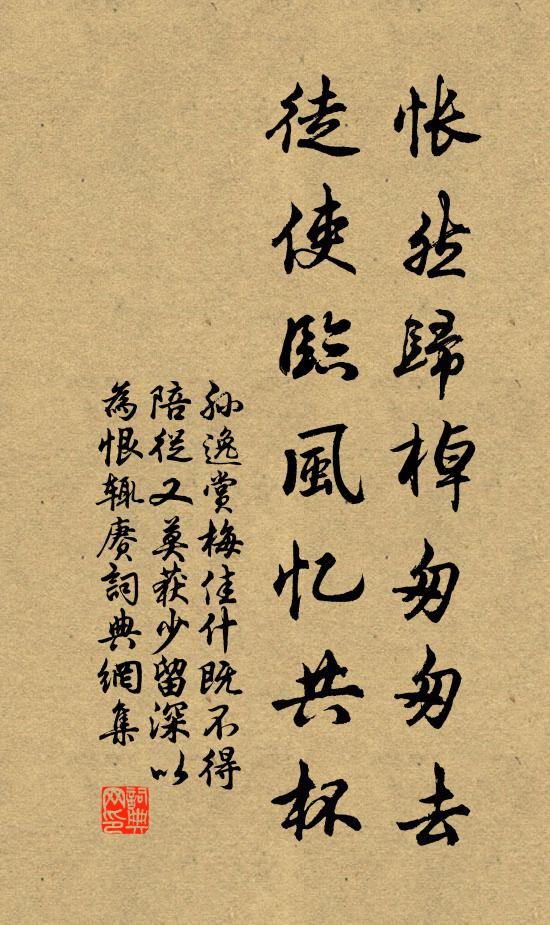 悵然歸棹匆匆去
徒使臨風忆共杯
孙逸賞梅佳什既不得
陪從又莫获少留深以
為恨辄赓詞典網集
詞典网印